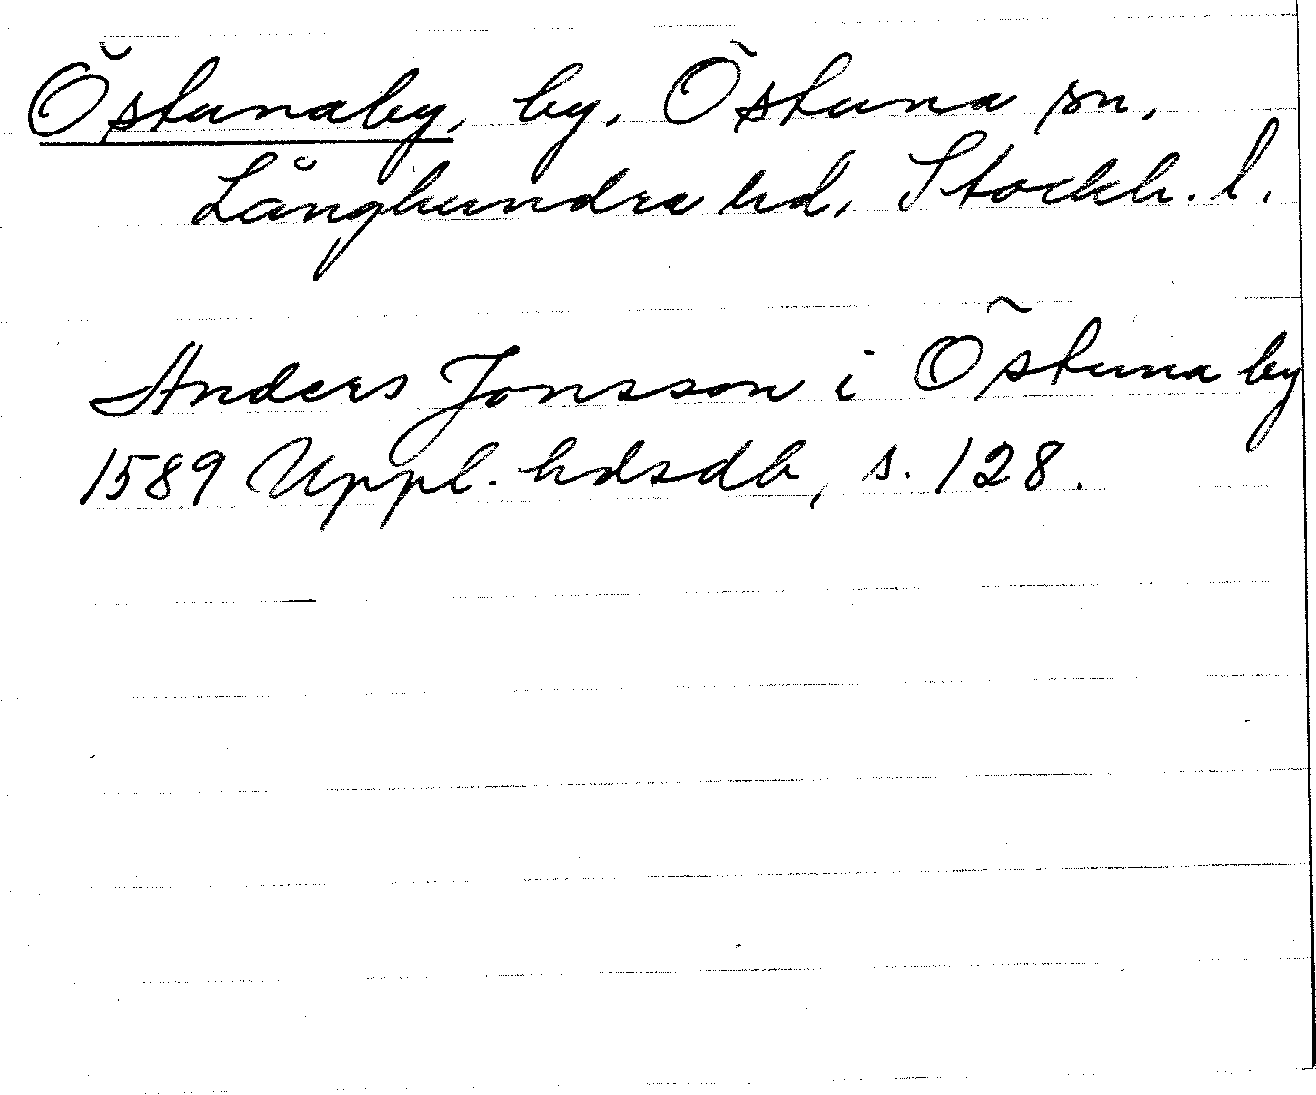 Östunaby, by, Östuna sn,
Långhundra hd, Stockh. l.
Anders Jonsson i Östuna by
1589 Uppl. hdsdb, s. 128.